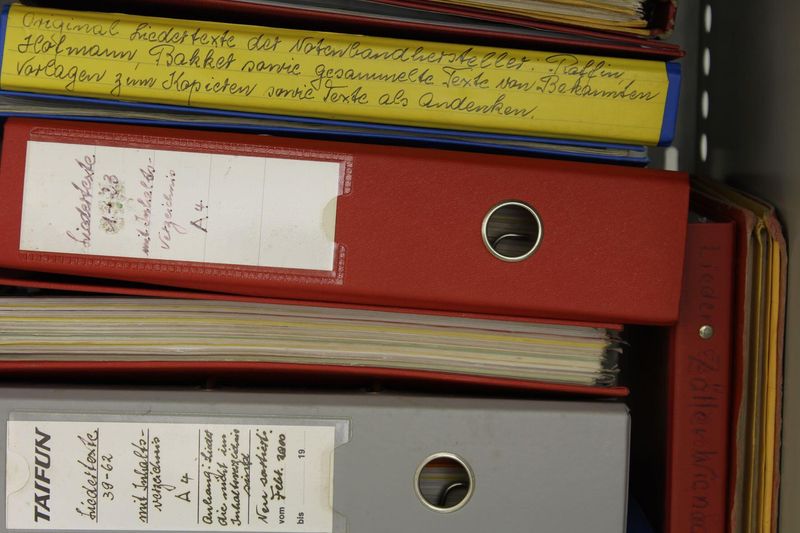 Original Liedertexte der Notenbandhersteller: Raffin,
Hofmann, Bakker sowie gesammelte Texte von Bekannten
Vorlagen zum Kopieren sowie Texte als Andenken.
Liedertexte
mit Inhalts-
verzeichnis
A4
TAIFUN
Liedertexte
39-62
mit Inhalts-
verzeichnis
A4
Anhang: Lieder
die nicht im
Inhaltsverzeichnis
sind
Neu sortiert:
vom Febr. 2010
bis 19
Lieder